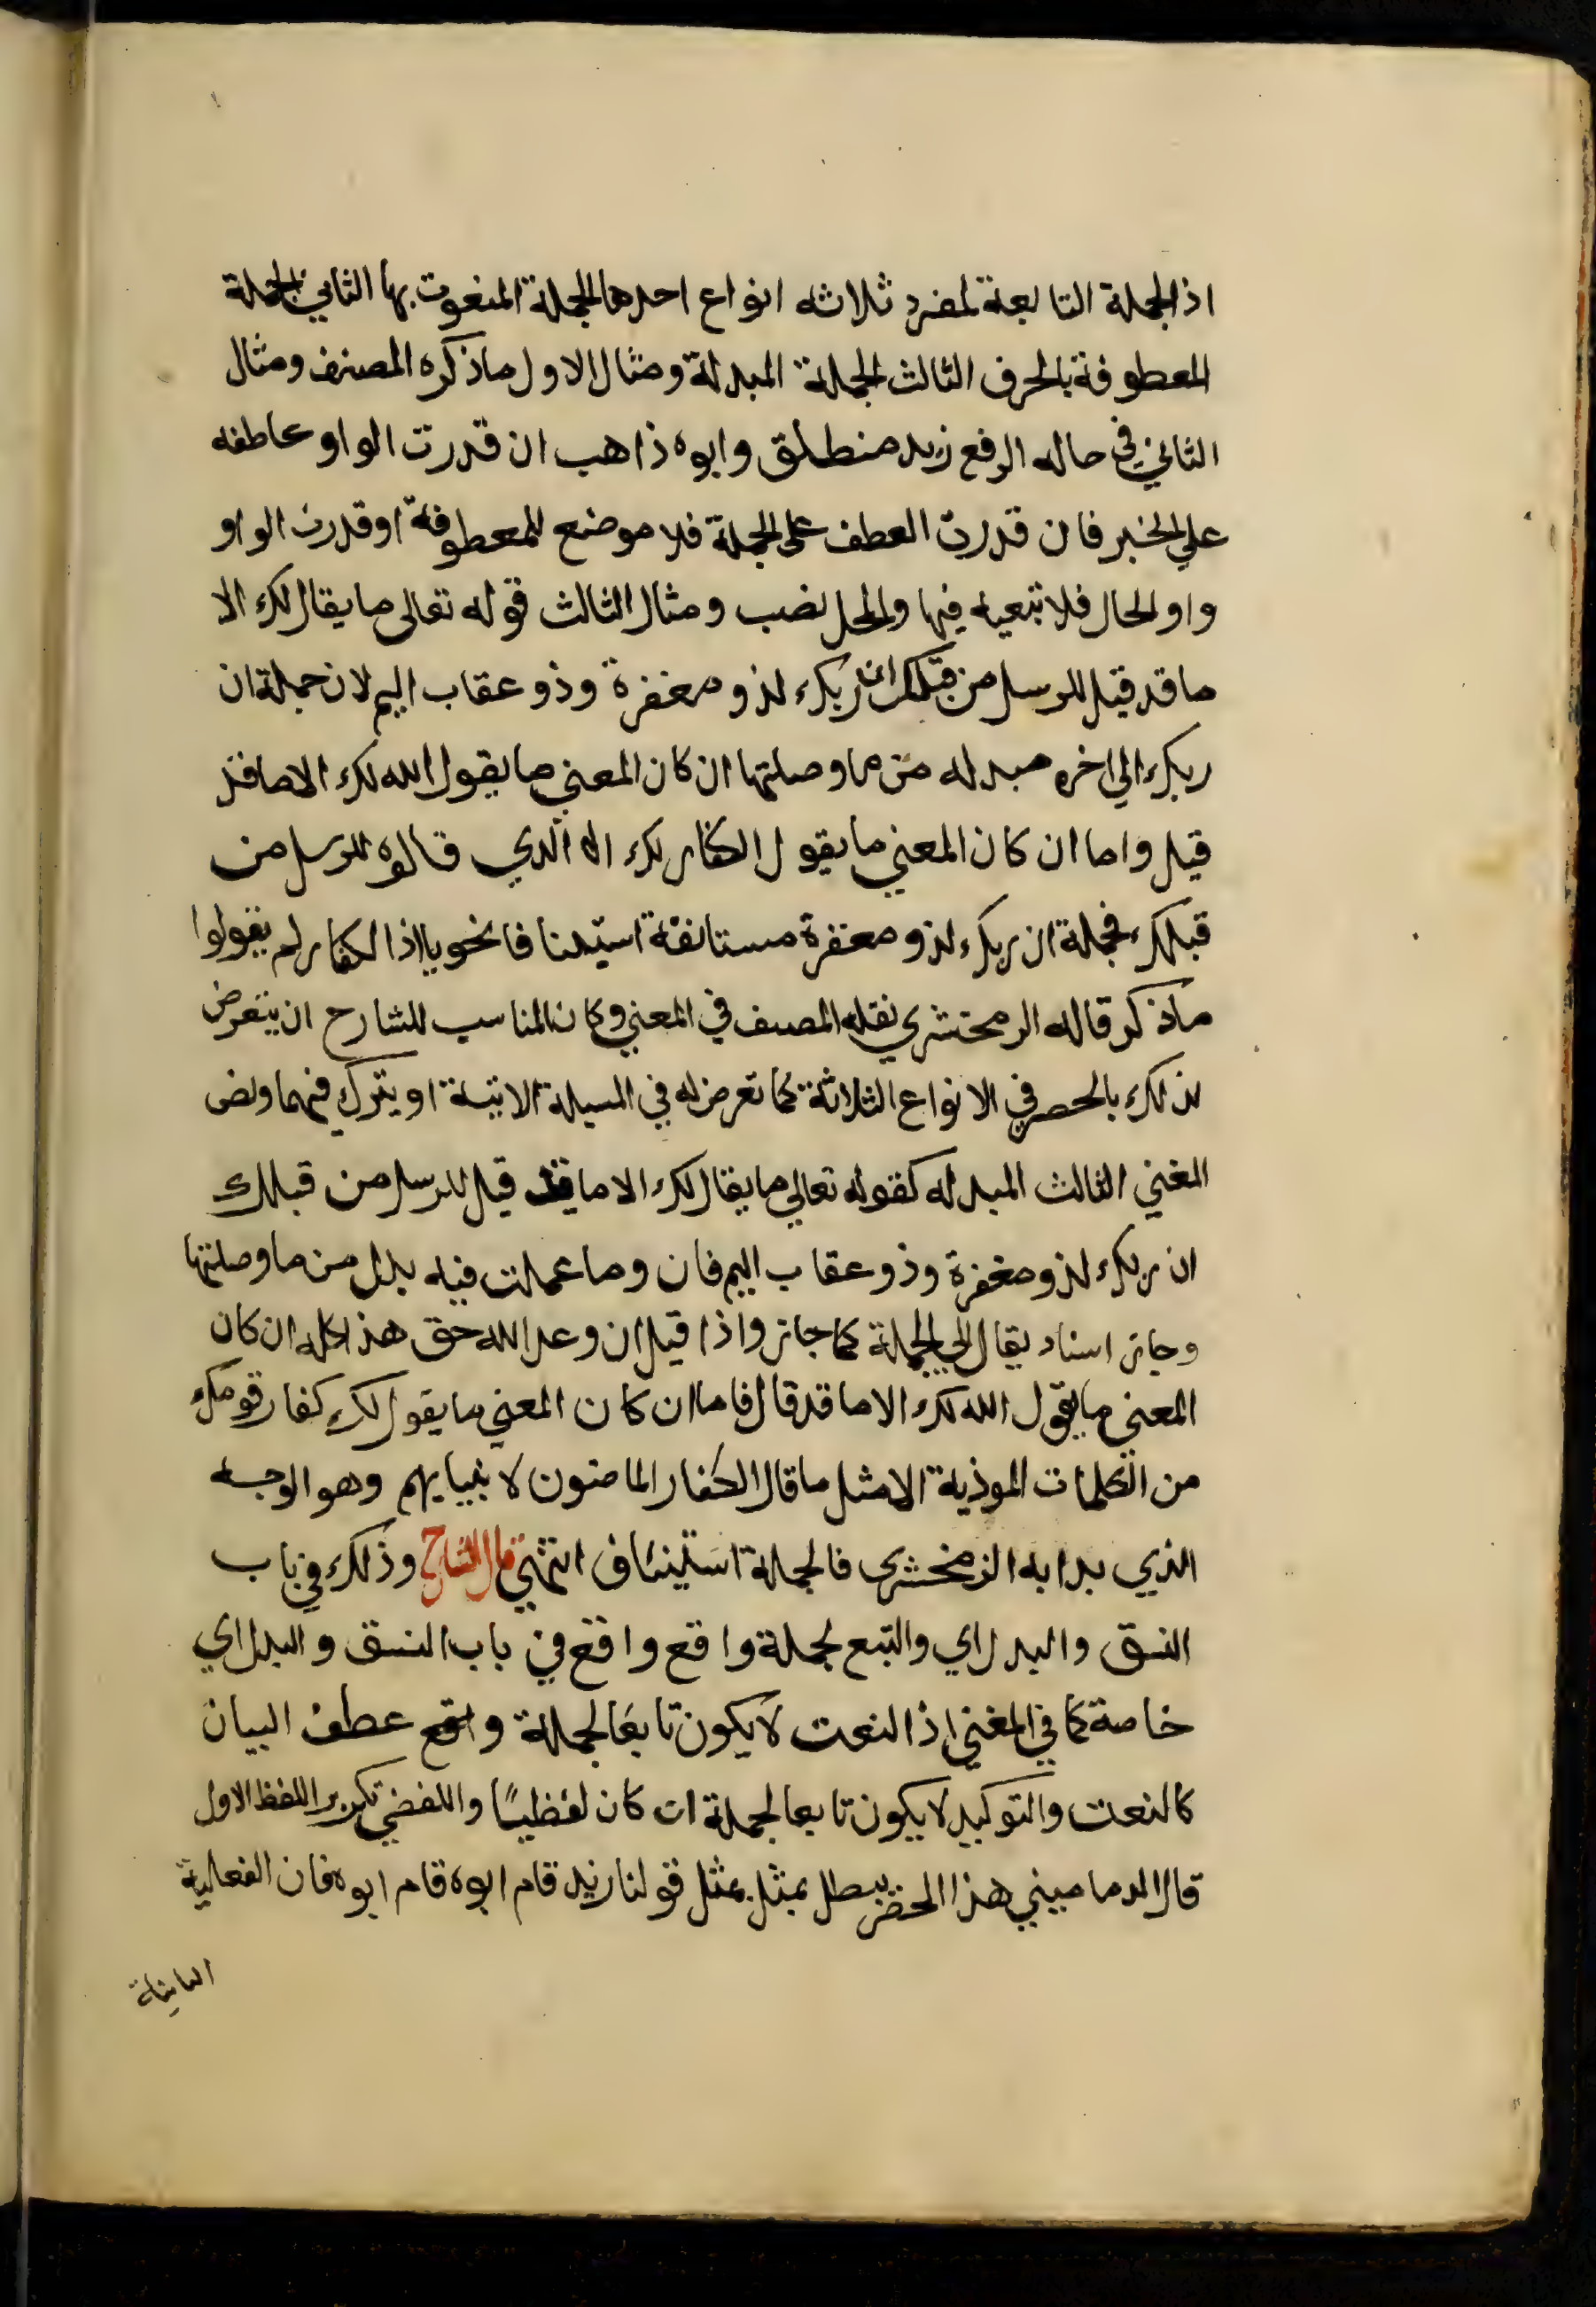 اذ الجملة التابعة لمفرد ثلاثه انواع احدها الجملة المنعوت بها الثاني الجملة
المعطوفة بالحرف الثالث الجملة المبدلة ومثال الاول ماذكره المصنف ومثال
الثاني في حاله الرفع زيد منطلق وابوه ذاهب ان قدرت الواو عاطفه
علي الخبر فان قدرت العطف على الجملة فلا موضع للمعطوفة اوقدرت الواو
واو الحال فلا تبعيه فيها والمحل نصب ومثال الثالث قوله تعالى ما يقال لك الا
ما قد قيل للرسل من قبلك ان ربك لذو مغفرة وذو عقاب اليم لان جملة ان
ربك الي اخره مبدله من ما وصلتها ان كان المعني ما يقول الله لك الا ما قد
قيل واما ان كان المعني ما يقول الكفار لك الا الذي قالوه للرسل من
قبلك فجملة ان ربك لذو مغفرة مستانفة استينافا نحويا اذ الكفار لم يقولوا
ماذكر قاله الزمخشري نقله المصنف في المغني وكان المناسب للشارح ان يتعرض
لذلك بالحصر في الانواع الثلاثة كما تعرض له في المسيلة الاتية او يترك فيهما ونص
المغني الثالث المبدله كقوله تعالي ما يقال لك الا ما قد قيل للرسل من قبلك
ان ربك لذو مغفرة وذو عقاب اليم فان وما عملت فيه بدل من ما وصلتها
وجاز اسناد يقال الي الجملة كما جاز واذا قيل ان وعد الله حق هذا كله ان كان
المعني ما يقول الله لك الا ما قد قال فاما ان كان المعني ما يقول لك كفار قومك
من الكلمات الموذية الا مثل ما قال الكفار الماضون لانبيايهم وهو الوجه
الذي بدا به الزمخشرى فالجملة استيناف انتهي قال الشارح وذلك في باب
النسق والبدل اي والتبع لجملة واقع واقع في باب النسق والبدل اي
خاصة كما في المغني اذ النعت لا يكون تابعا لجملة واقع عطف البيان
كالنعت والتوكيد لا يكون تابعا لجملة ان كان لفظيا واللفضي تكرير اللفظ الاول
قال الدماميني هذا الحصر يبطل بمثل بمثل قولنا زيد قام ابوه قام ابوه فان الفعلية